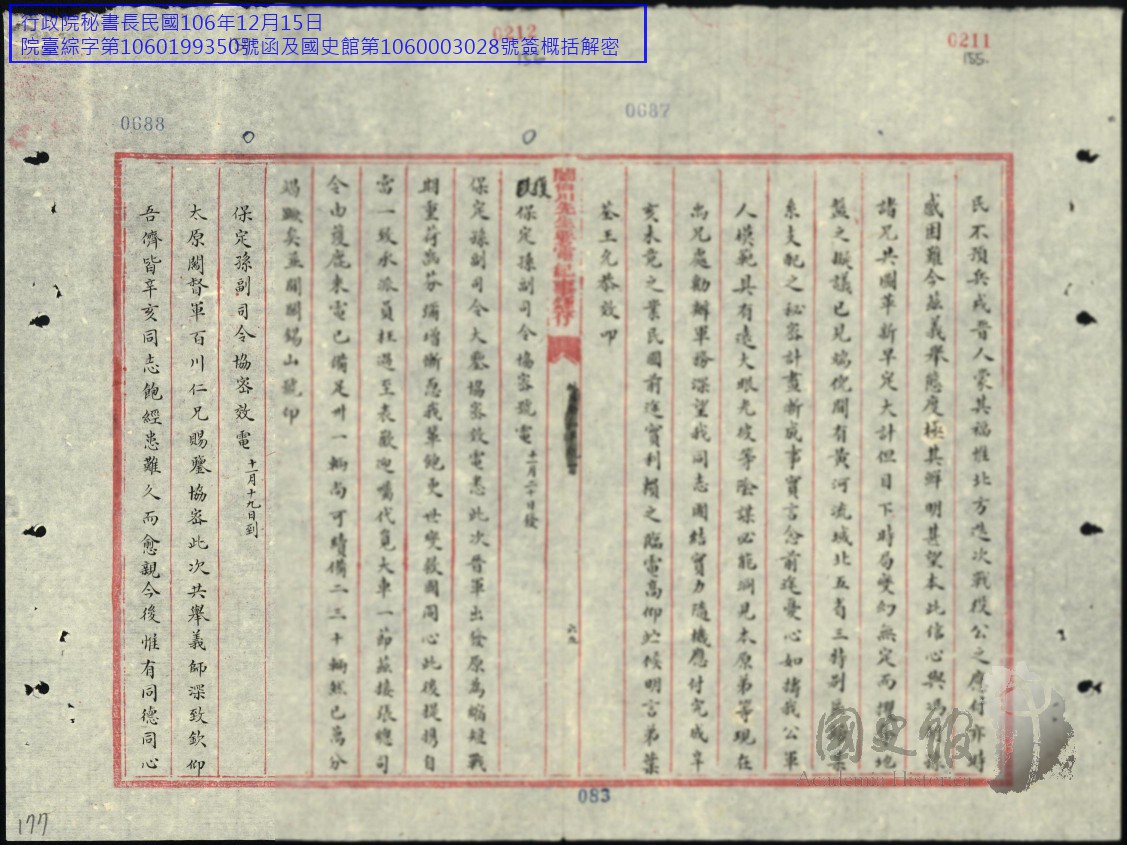 行政院秘書長民國106年12月15日
院臺綜字第1060199350號函及國史館第1060003028號簽概括解密
0212
0211
155
0688
0687
民不預兵戎晉人蒙其福惟北方造次戰役公之應付亦時
感困難今茲義舉態度極其鮮明甚望本此信心與馮
諸兄共圖革新早定大計但目下時局變幻無定而地
盤之擬議已見端倪間有黃河流域北五省三特別
系支配之秘密計畫漸成事實言念前途憂心如擣我公軍
人模範具有遠大眼光彼等陰謀必能洞見本原弟等現在
尚兄處勷辦軍務深望我同志團結實力隨機應付完成辛
亥未竟之業民國前途實利賴之臨電高仰候明言弟葉
荃王允恭效叩
閻伯川先生要電紀事錄存
六九
復保定孫副司令協密號電 十一月二十日發
保定孫副司令大鑒協密效電悉此次晉軍出發原為縮短戰
期重荷勞彌增慚恧我輩飽更世變救國同心此後提携自
當一致承派員枉過至表歡迎囑代覓大車一節茲接張總司
令由獲鹿來電已備足卅一輛尚可續備二三十輛然已萬分
竭蹶矣並聞閻錫山號印
保定孫副司令協密效電 十一月十九日到
太原閻督軍百川仁兄賜鑒協密此次共舉義師深致欽仰
吾儕皆辛亥同志飽經患難久而愈親今後惟有同德同心
083
177
國史館
Academia Historica